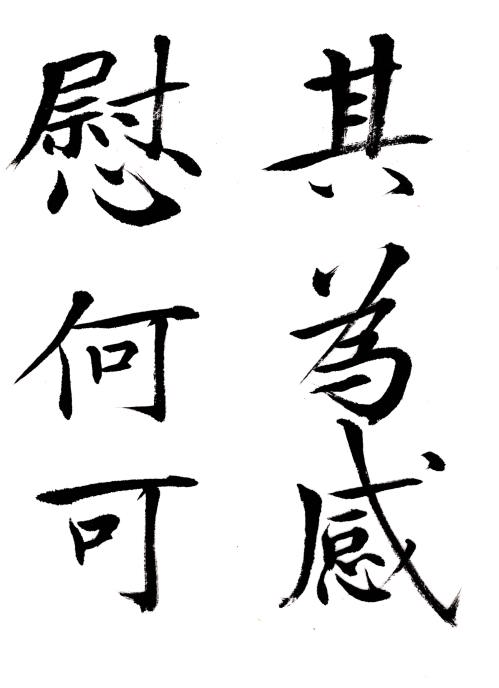 其為感
慰何可